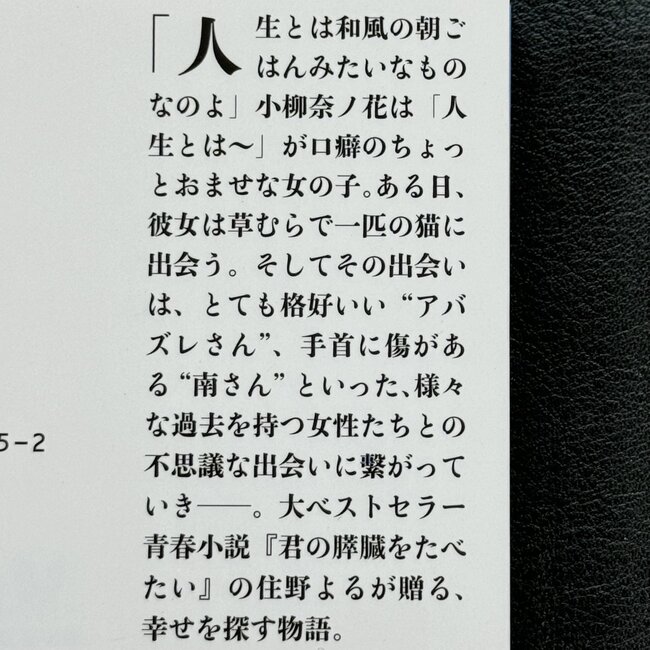 「人生とは和風の朝ご
はんみたいなもの
なのよ」小柳奈ノ花は「人
生とは〜」が口癖のちょっ
とおませな女の子。ある日、
彼女は草むらで一匹の猫に
出会う。そしてその出会い
は、とても格好いい“アバ
ズレさん”、手首に傷があ
る“南さん”といった、様々
な過去を持つ女性たちとの
不思議な出会いに繋がって
いき――。大ベストセラー
青春小説『君の膵臓をたべ
たい』の住野よるが贈る、
幸せを探す物語。
5-2